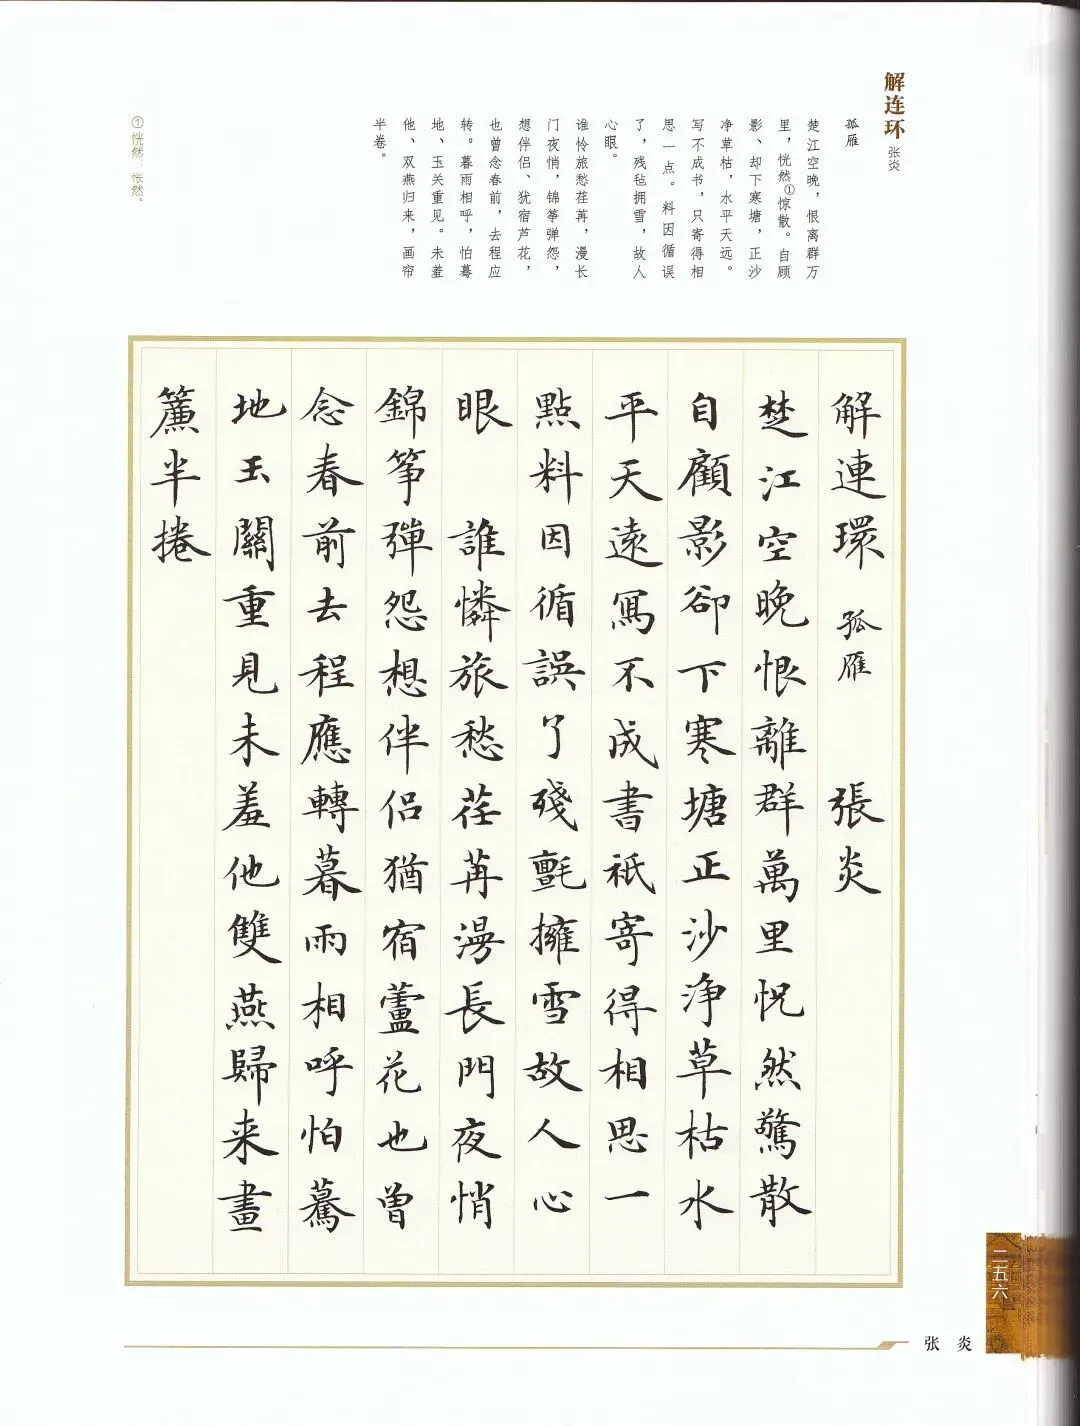 解连环
张炎
孤雁
楚江空晚，恨离群万
里，恍然①惊散。自顾
影、却下寒塘，正沙
净草枯，水平天远。
写不成书，只寄得相
思一点。料因循误
了，残毡拥雪，故人
心眼。
谁怜旅愁荏苒，漫长
门夜悄，锦筝弹怨，
想伴侣、犹宿芦花，
也曾念春前，去程应
转。暮雨相呼，怕蓦
地、玉关重见。未羞
他、双燕归来，画帘
半卷。
①恍然：怅然。
解連環 孤雁 張炎
楚江空晚恨離群萬里怳然驚散
自顧影卻下寒塘正沙浄草枯水
平天遠寫不成書祇寄得相思一
點料因循誤了殘氈擁雪故人心
眼 誰憐旅愁荏苒漫長門夜悄
錦筝彈怨想伴侣猶宿蘆花也曾
念春前去程應轉暮雨相呼怕驀
地玉關重見未羞他雙燕歸来畫
簾半捲
二五六
张炎